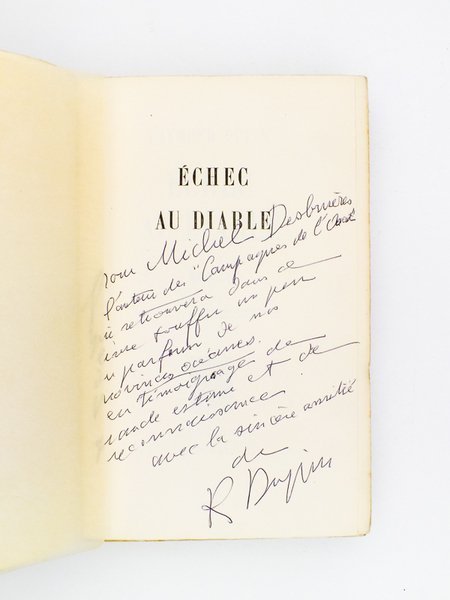 ÉCHEC
AU DIABLE
Pour Michel Desbruères
l'auteur des "Campagnes de l'Ouest"
retrouvera dans ce
souffre un peu
parfum de nos
provinces océanes.
en témoignage de
grande estime et de
reconnaissance
avec la sincère amitié
de
R Dupin